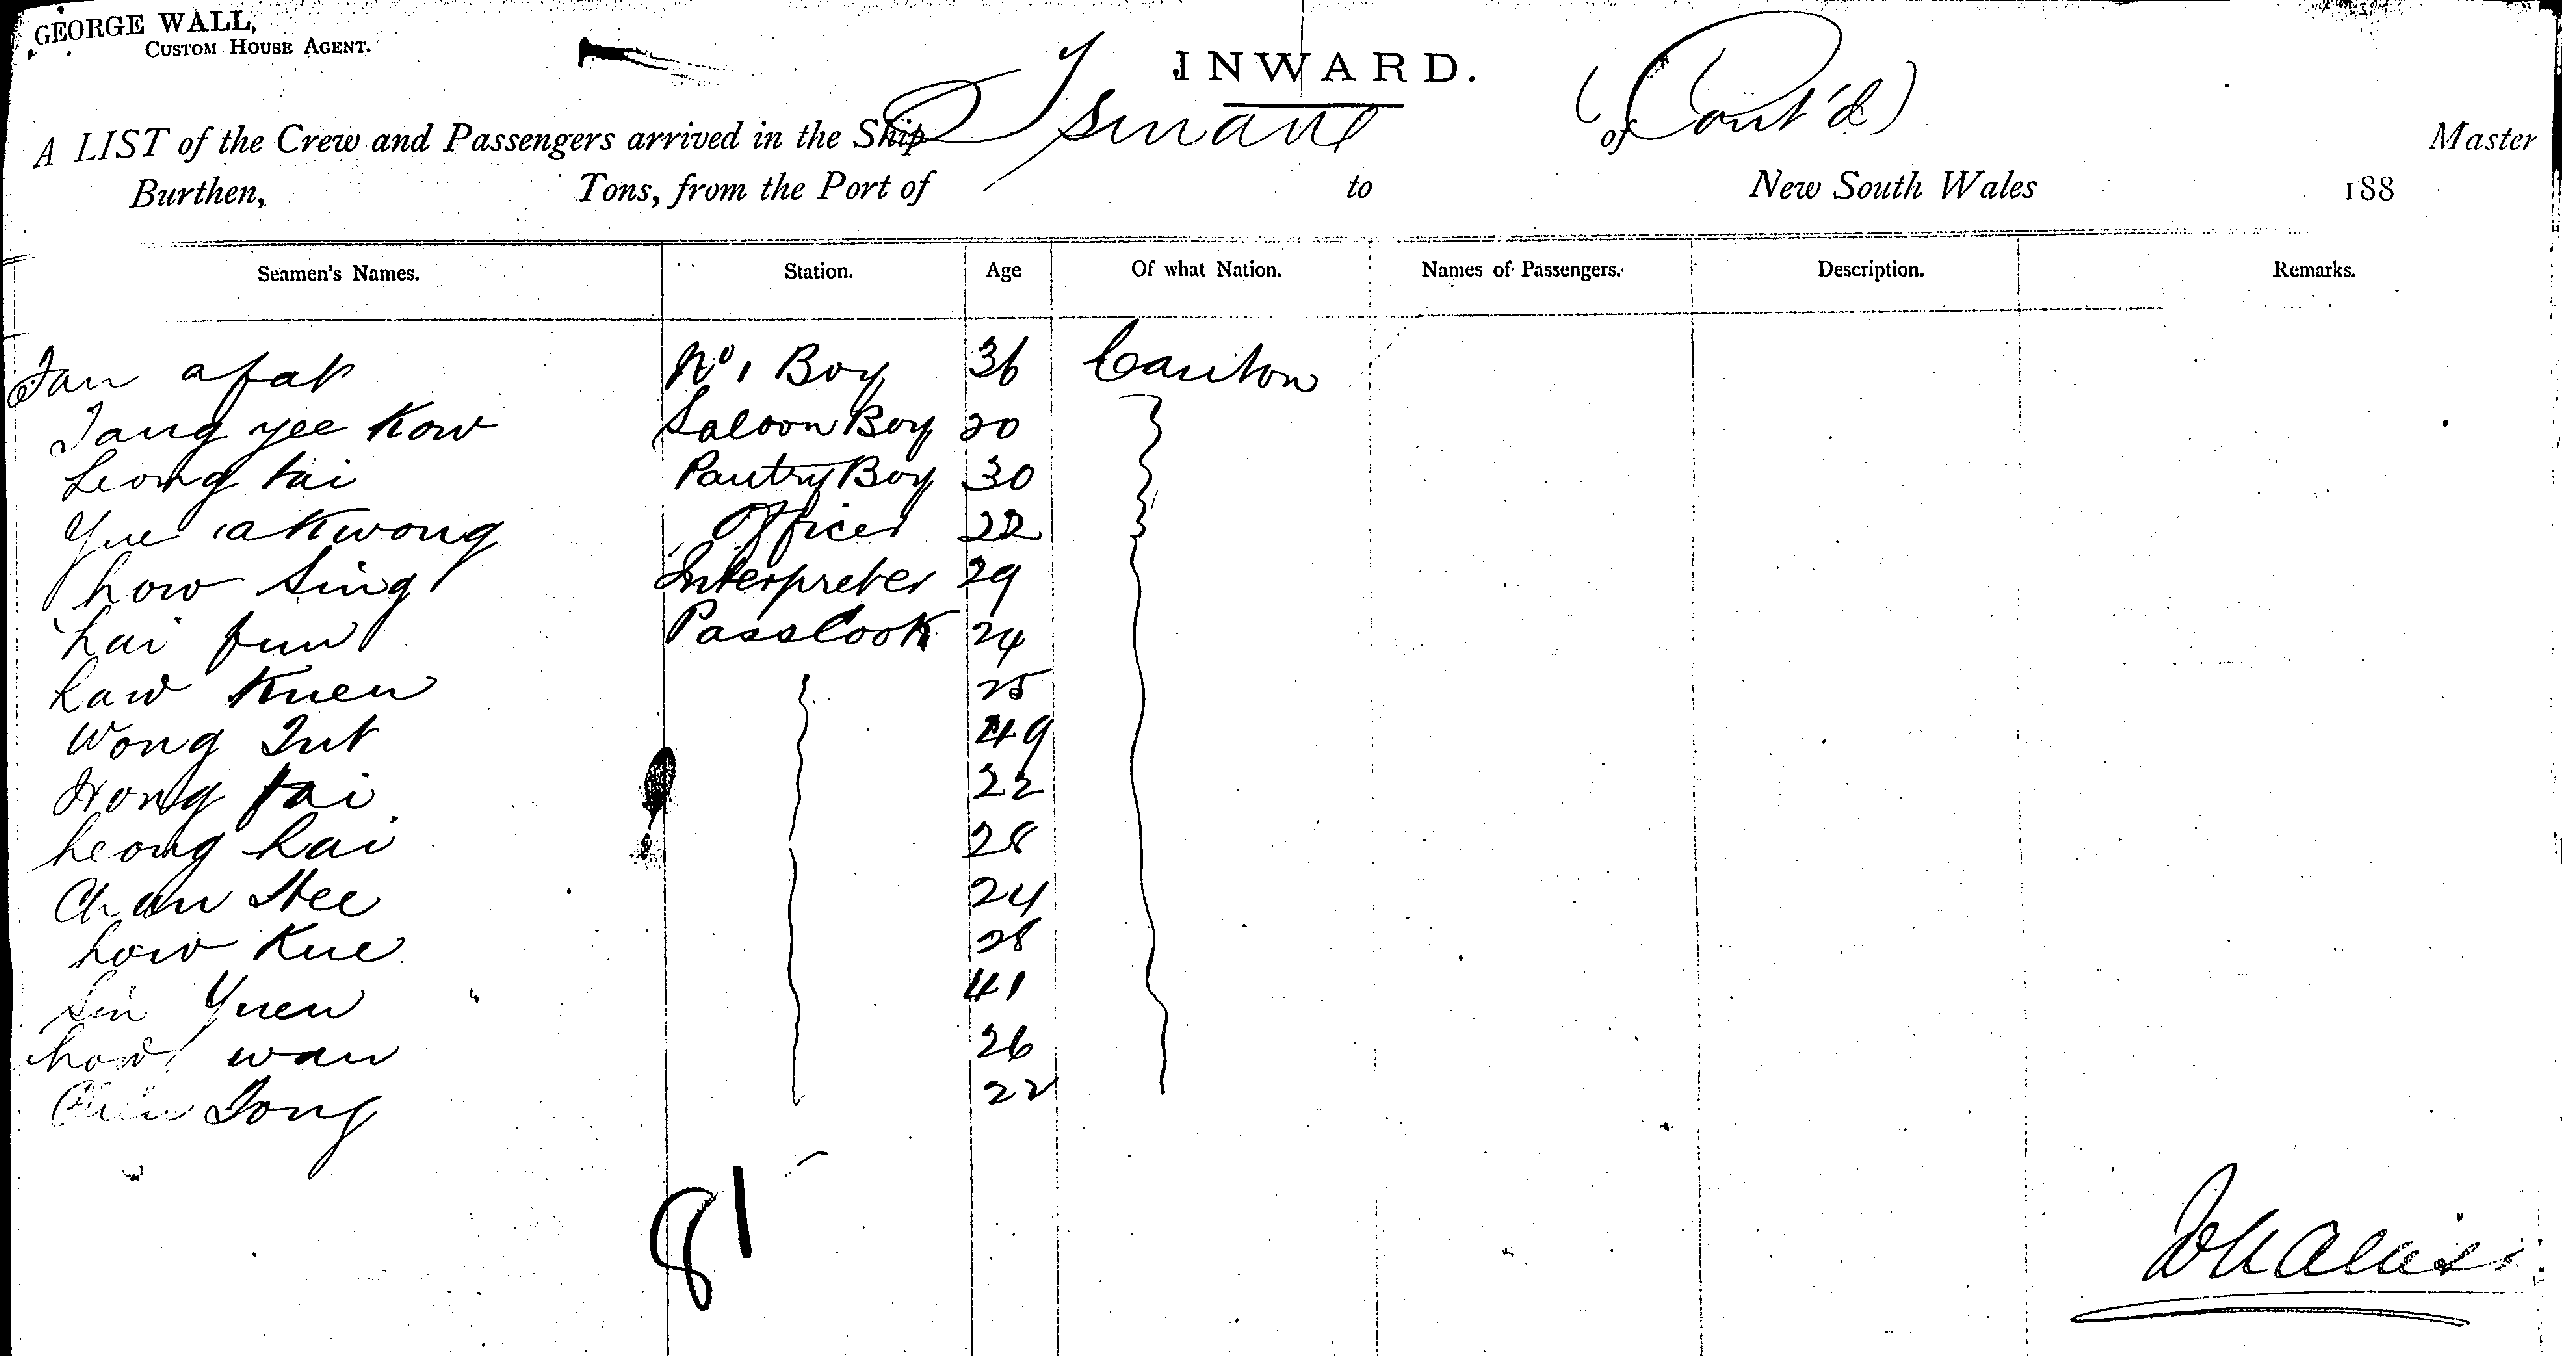 GEORGE WALL,
CUSTOM HOUSE AGENT.
INWARD.
A LIST of the Crew and Passengers arrived in the Ship Tsinan of (Cont'd) Master
Burthen, Tons, from the Port of to New South Wales 188
Seamen's Names. Station. Age Of what Nation. Names of Passengers. Description. Remarks.
Tan afat No 1 Boy 36 Canton
Tang yee Kow Saloon Boy 20
Leong tai Pantry Boy 30
Yue akwong Officer 22
how Sing Interpreter 29
Lai fun Pass Cook 24
Law Kuen 25
Wong Tut 49
Hong tai 22
Leong Kai 28
Chan Hee 24
Low Kue 28
Lin Yuen 41
how wan 26
Tong 22
81